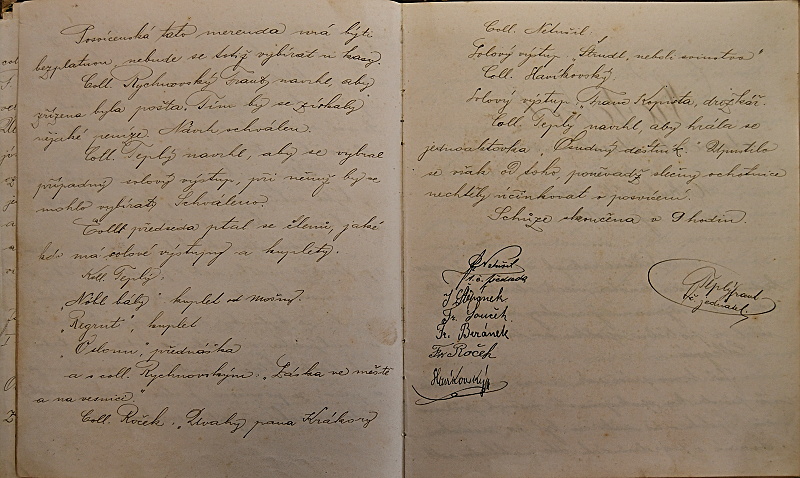 Posvícenská tato merenda má býti
bezplatnou, nebude se totiž vybírat u kasy.
Coll. Rychnovský Franz navrhl, aby
zřízena byla pošta. Tím by se získaly
nějaké peníze. Návrh schválen.
Coll. Teplý navrhl, aby se vybral
případný solový výstup, při němž by se
mohlo vybírat. Schváleno.
Coll. předseda ptal se členů, jaké
kdo má solové výstupy a kuplety.
Coll. Teplý:
báby" kuplet od
"Regrut", kuplet
"O slonu", přednáška
a s coll. Rychnovským: "Láska ve městě
a na vesnici."
Coll. Roček. "Úvahy pana
Coll. Netušil.
Solový výstup "Študl, neboli svinstvo"
Coll. Havkovský.
Solový výstup "Franc Kopista, drožkář.
Coll. Teplý navrhl, aby hrála se
jednoaktovka "Osudný deštník." Upustilo
se však od toho, poněvadž slečny ochotnice
nechtěly účinkovat o posvícení.
Schůze skončena v 9 hodin.
Netušil
t. č. předseda
J. Štěpánek
Fr. Souček
Fr. Beránek
Fr. Roček
Havkovský
Teplý
t. č. jednatel.